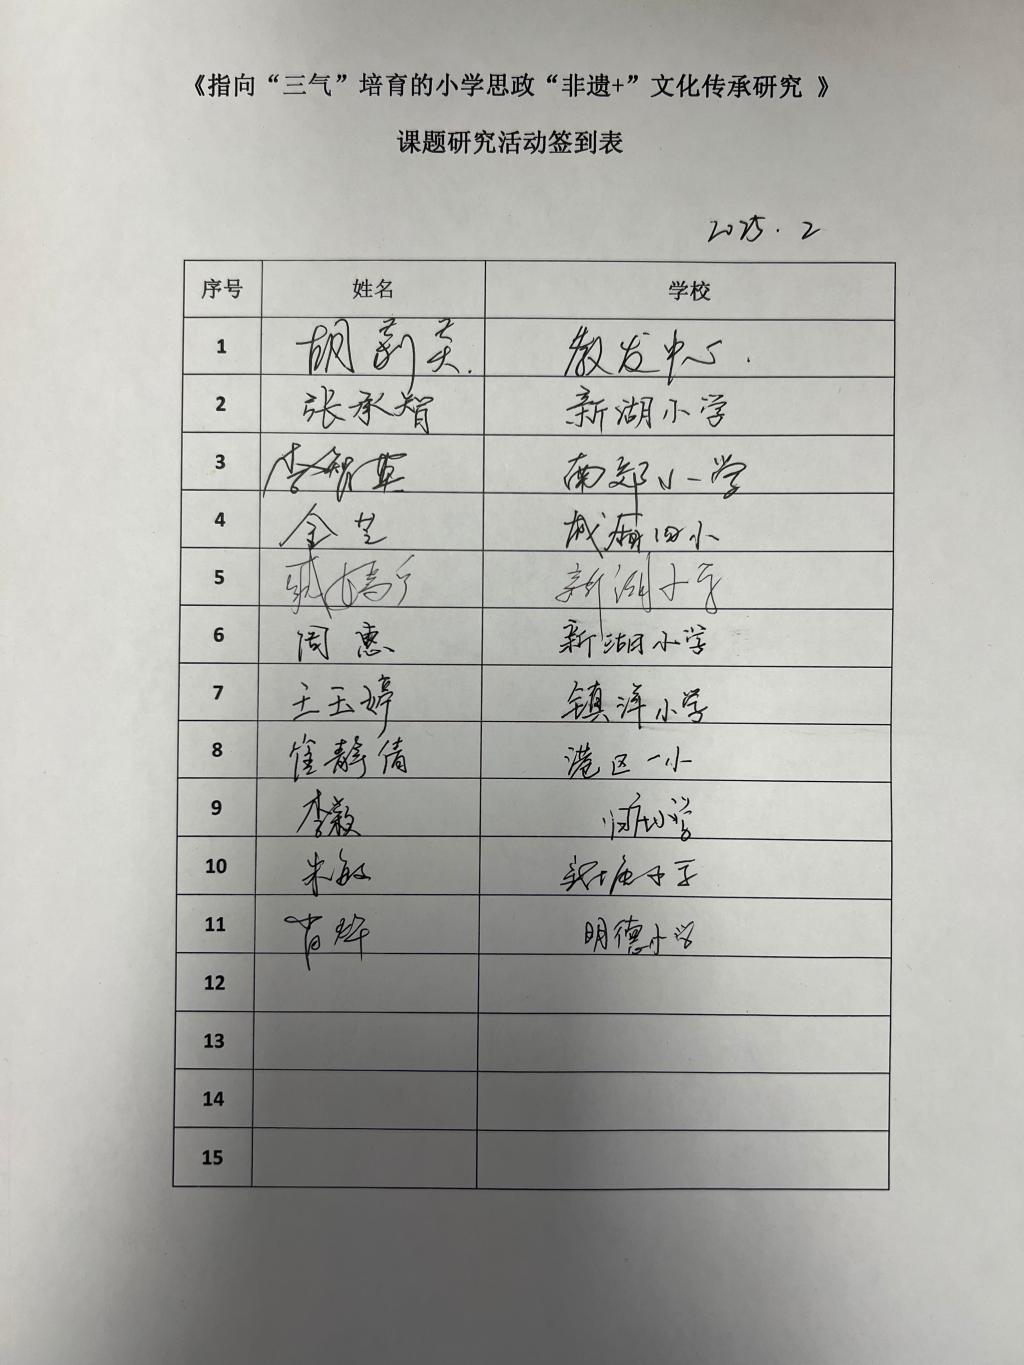 《指向“三气”培育的小学思政“非遗+”文化传承研究 》
课题研究活动签到表
2025.2
序号 姓名 学校
1 胡莉英. 教发中心.
2 张承智 新湖小学
3 李智英 南郊小学
4 金芝 城厢四小
5 新湖小学
6 周惠 新湖小学
7 王玉婷 镇洋小学
8 崔静倩 港区一小
9 李毅 归庄小学
10 朱敏 新塘小学
11 肖烨 明德小学
12
13
14
15